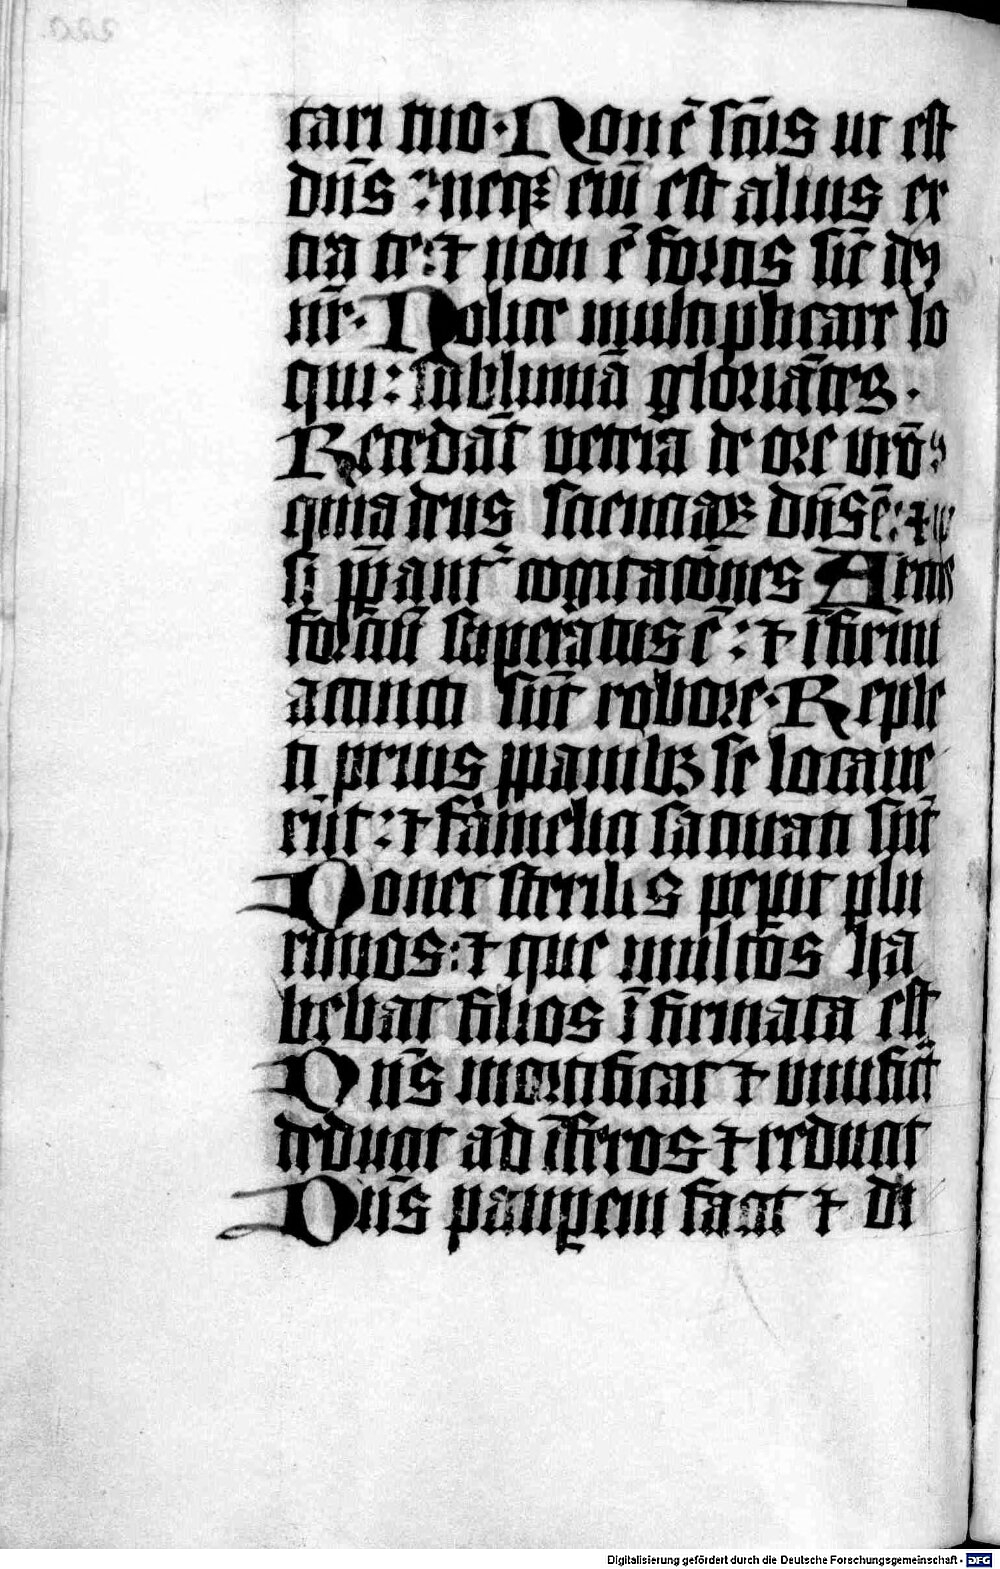 tari tuo. Non ē sc̄us ut est
dn̄s: neqꝫ eni̅ est alius ex
tra te: ⁊ non ē fortis sic̄ de9
nr̄. Nolite multiplicare lo
qui: sublimia gloria̅tes.
Receda̅t vetera de ore vr̄o:
quia deus scientiaꝝ dn̄s ē: ⁊ ip
si p̄parant᷑ cogitatio̅nes Arcus
fortiu̅ superatus ē: ⁊ i̅firmi
accincti su̅t robore. Reple
ti prius p̄ panibꝫ se locaue
ru̅t: ⁊ famelici saturati su̅t
Donec sterilis peperit plu
rimos: ⁊ que multos ha
bebat filios i̅firmata est
Dn̄s mortificat ⁊ viuificat
deducit ad i̅feros ⁊ reducit
Dn̄s pauꝑem facit ⁊ di
Digitalisierung gefördert durch die Deutsche Forschungsgemeinschaft - DFG